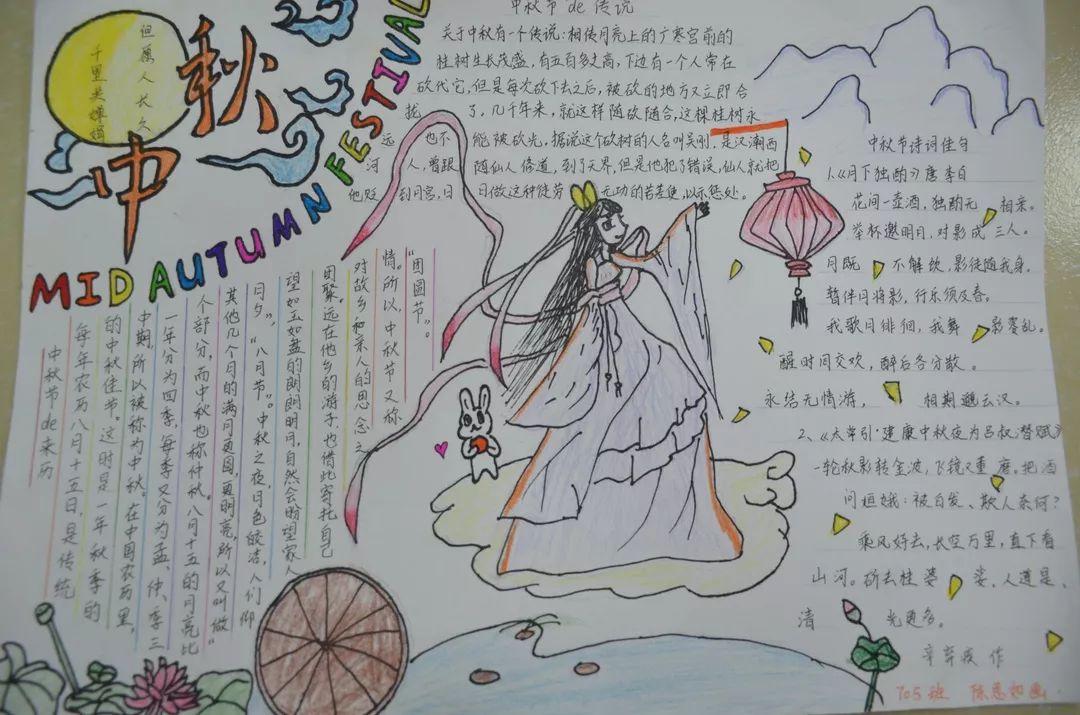 但愿人长久
千里共婵娟
中秋
MID AUTUMN FESTIVAL
中秋节de传说
关于中秋有一个传说：相传月亮上的广寒宫前的
桂树生长茂盛，有五百多丈高，下边有一个人常在
砍伐它，但是每次砍下去之后，被砍的地方又立即合
拢了，几千年来，就这样随砍随合，这棵桂树永
远也不能被砍光，据说这个砍树的人名叫吴刚，是汉潮西
河人，曾跟随仙人修道，到了天界，但是他犯了错误，仙人就把
他贬到月宫，日日做这种徒劳无功的苦差使，以示惩处。
中秋节de来历
每年农历八月十五日，是传统
的中秋佳节。这时是一年秋季的
中期，所以被称为中秋。在中国农历里，
一年分为四季，每季又分为孟、仲、季三
个部分，而中秋也称仲秋。八月十五的月亮比
其他几个月的满月更圆，更明亮，所以又叫做“
月夕”，“八月节”。中秋之夜，月色皎洁，人们仰
望如玉如盘的朗朗明月，自然会盼望家人
团聚。远在他乡的游子，也借此寄托自己
对故乡和亲人的思念之
情。所以，中秋节又称
“团圆节”。
中秋节诗词佳句
1、《月下独酌》唐李白
花间一壶酒，独酌无相亲。
举杯邀明月，对影成三人。
月既不解饮，影徒随我身。
暂伴月将影，行乐须及春。
我歌月徘徊，我舞影零乱。
醒时同交欢，醉后各分散。
永结无情游，相期邈云汉。
2、《太常引·建康中秋夜为吕叔潜赋》
一轮秋影转金波，飞镜又重磨。把酒
问姮娥：被白发、欺人奈何？
乘风好去，长空万里，直下看
山河。斫去桂婆娑，人道是、
清光更多。
辛弃疾作
705班 陈思如画